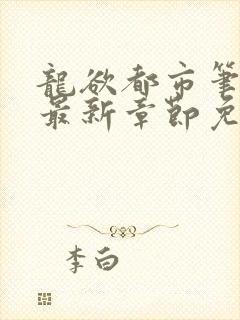 龍欲都市筆
最新章節免
李白